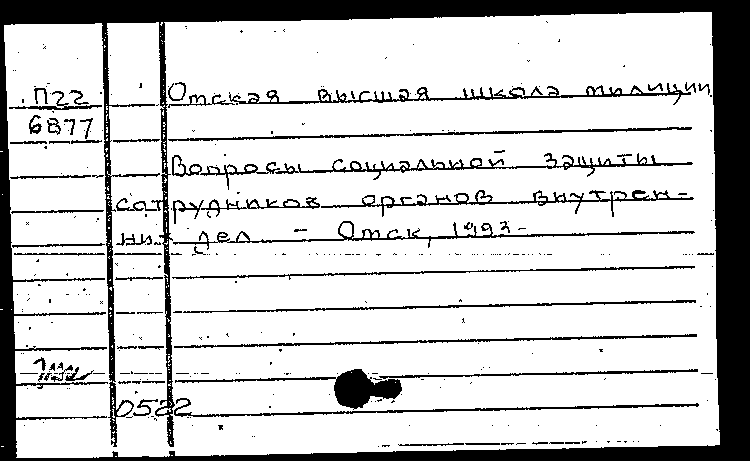 П22 Омская высшая школа милиции
6877
Вопросы социальной защиты
сотрудников органов внутрен-
них дел - Омск, 1993-
0522